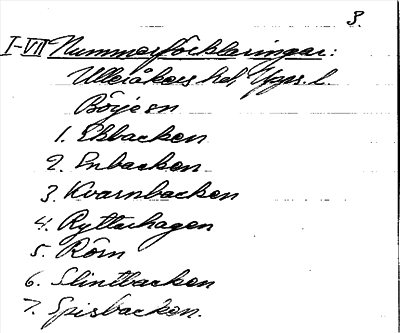 3.
I-VII Nummerförklaringar:
Ulleråkers hd, Upps. l.
Börje sn
1. Ekbacken
2. Enbacken
3. Kvarnbacken
4. Ryttarhagen
5. Rörn
6. Slintbacken
7. Spisbacken.